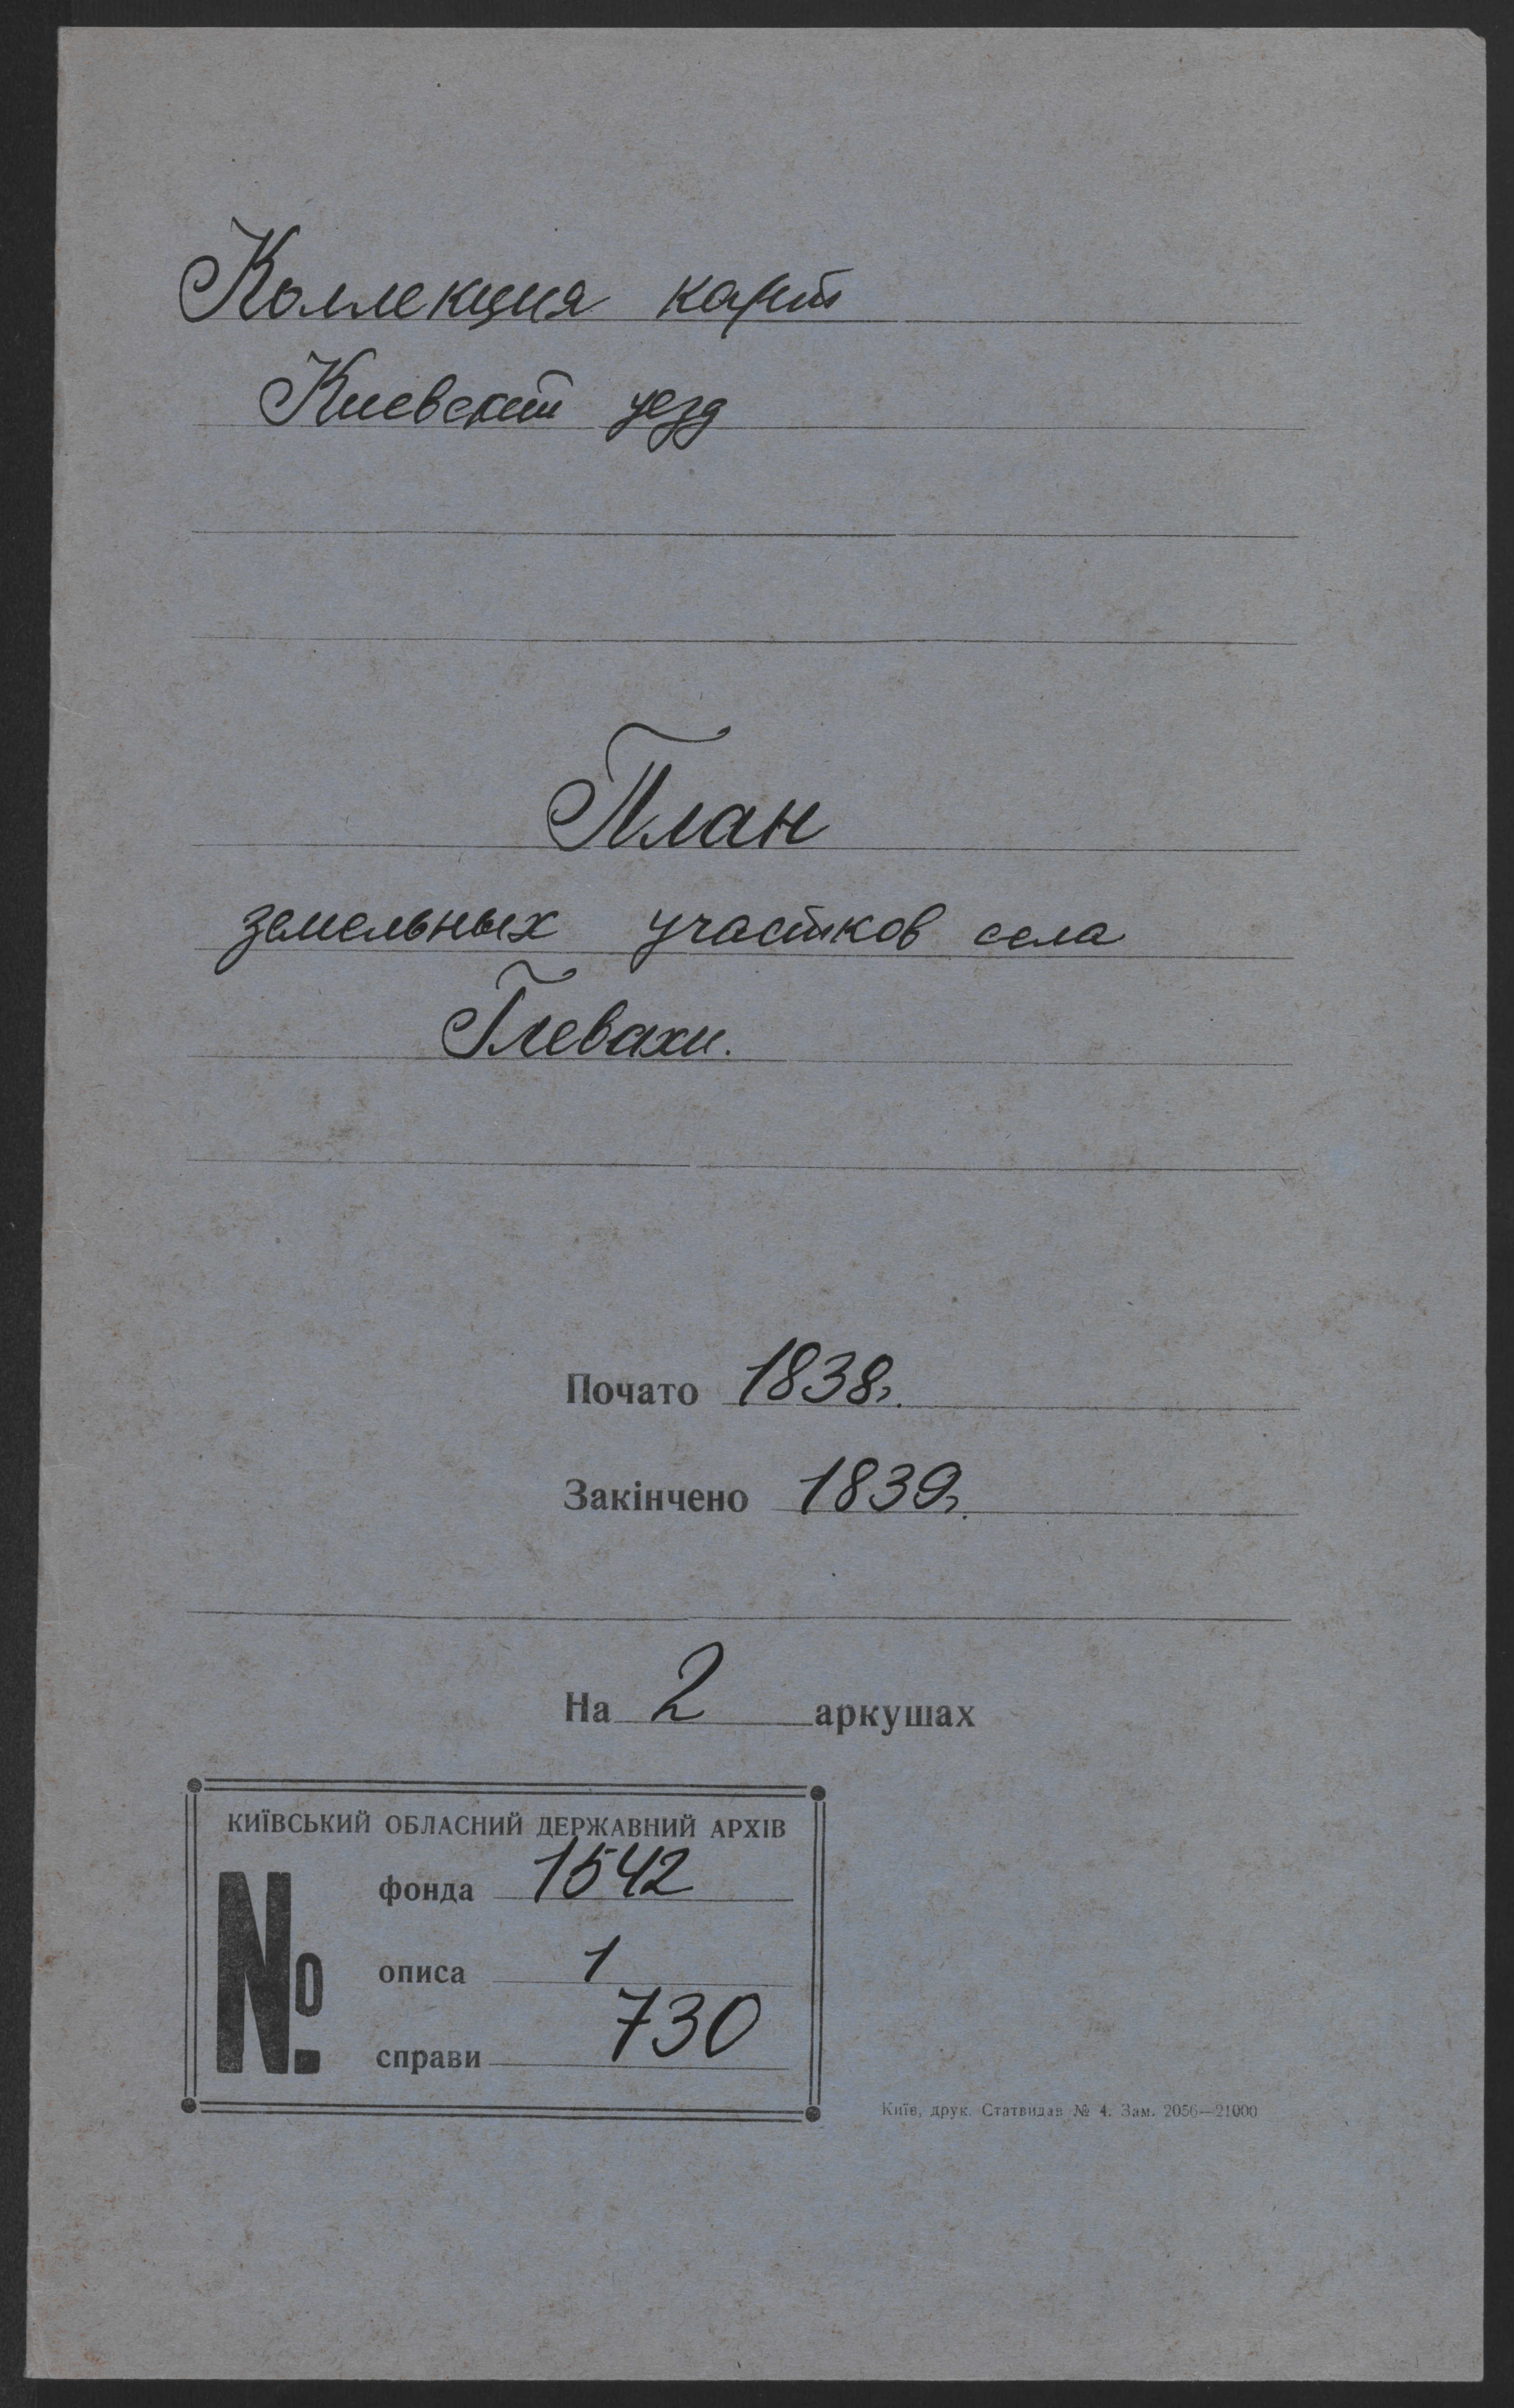 Коллекция карт
Киевский уезд
План
земельных участков села
Глевахи.
Почато 1838 г.
Закінчено 1839 г.
На 2 аркушах
КИЇВСЬКИЙ ОБЛАСНИЙ ДЕРЖАВНИЙ АРХІВ
№ фонда 1542
описа 1
справи 730
Київ, друк. Статвидав № 4. Зам. 2056—21000